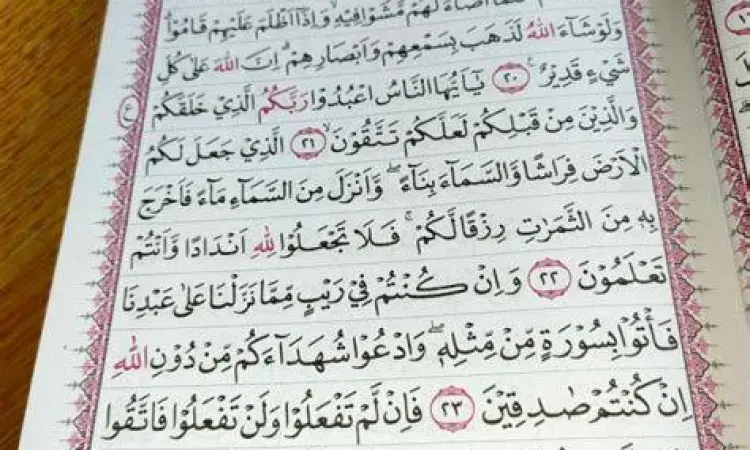 اَضَاۤءَ لَهُمْ مَّشَوْا فِيْهِ ۙ وَاِذَآ اَظْلَمَ عَلَيْهِمْ قَامُوْا ۗ
وَلَوْ شَاۤءَ اللّٰهُ لَذَهَبَ بِسَمْعِهِمْ وَاَبْصَارِهِمْ ۗ اِنَّ اللّٰهَ عَلٰى كُلِّ
شَيْءٍ قَدِيْرٌ ࣖ ٢٠ يٰٓاَيُّهَا النَّاسُ اعْبُدُوْا رَبَّكُمُ الَّذِيْ خَلَقَكُمْ
وَالَّذِيْنَ مِنْ قَبْلِكُمْ لَعَلَّكُمْ تَتَّقُوْنَ ۙ ٢١ الَّذِيْ جَعَلَ لَكُمُ
الْاَرْضَ فِرَاشًا وَّالسَّمَاۤءَ بِنَاۤءً ۖ وَّاَنْزَلَ مِنَ السَّمَاۤءِ مَاۤءً فَاَخْرَجَ
بِهٖ مِنَ الثَّمَرٰتِ رِزْقًا لَّكُمْ ۚ فَلَا تَجْعَلُوْا لِلّٰهِ اَنْدَادًا وَّاَنْتُمْ
تَعْلَمُوْنَ ٢٢ وَاِنْ كُنْتُمْ فِيْ رَيْبٍ مِّمَّا نَزَّلْنَا عَلٰى عَبْدِنَا
فَأْتُوْا بِسُوْرَةٍ مِّنْ مِّثْلِهٖ ۖ وَادْعُوْا شُهَدَاۤءَكُمْ مِّنْ دُوْنِ اللّٰهِ
اِنْ كُنْتُمْ صٰدِقِيْنَ ٢٣ فَاِنْ لَّمْ تَفْعَلُوْا وَلَنْ تَفْعَلُوْا فَاتَّقُوا